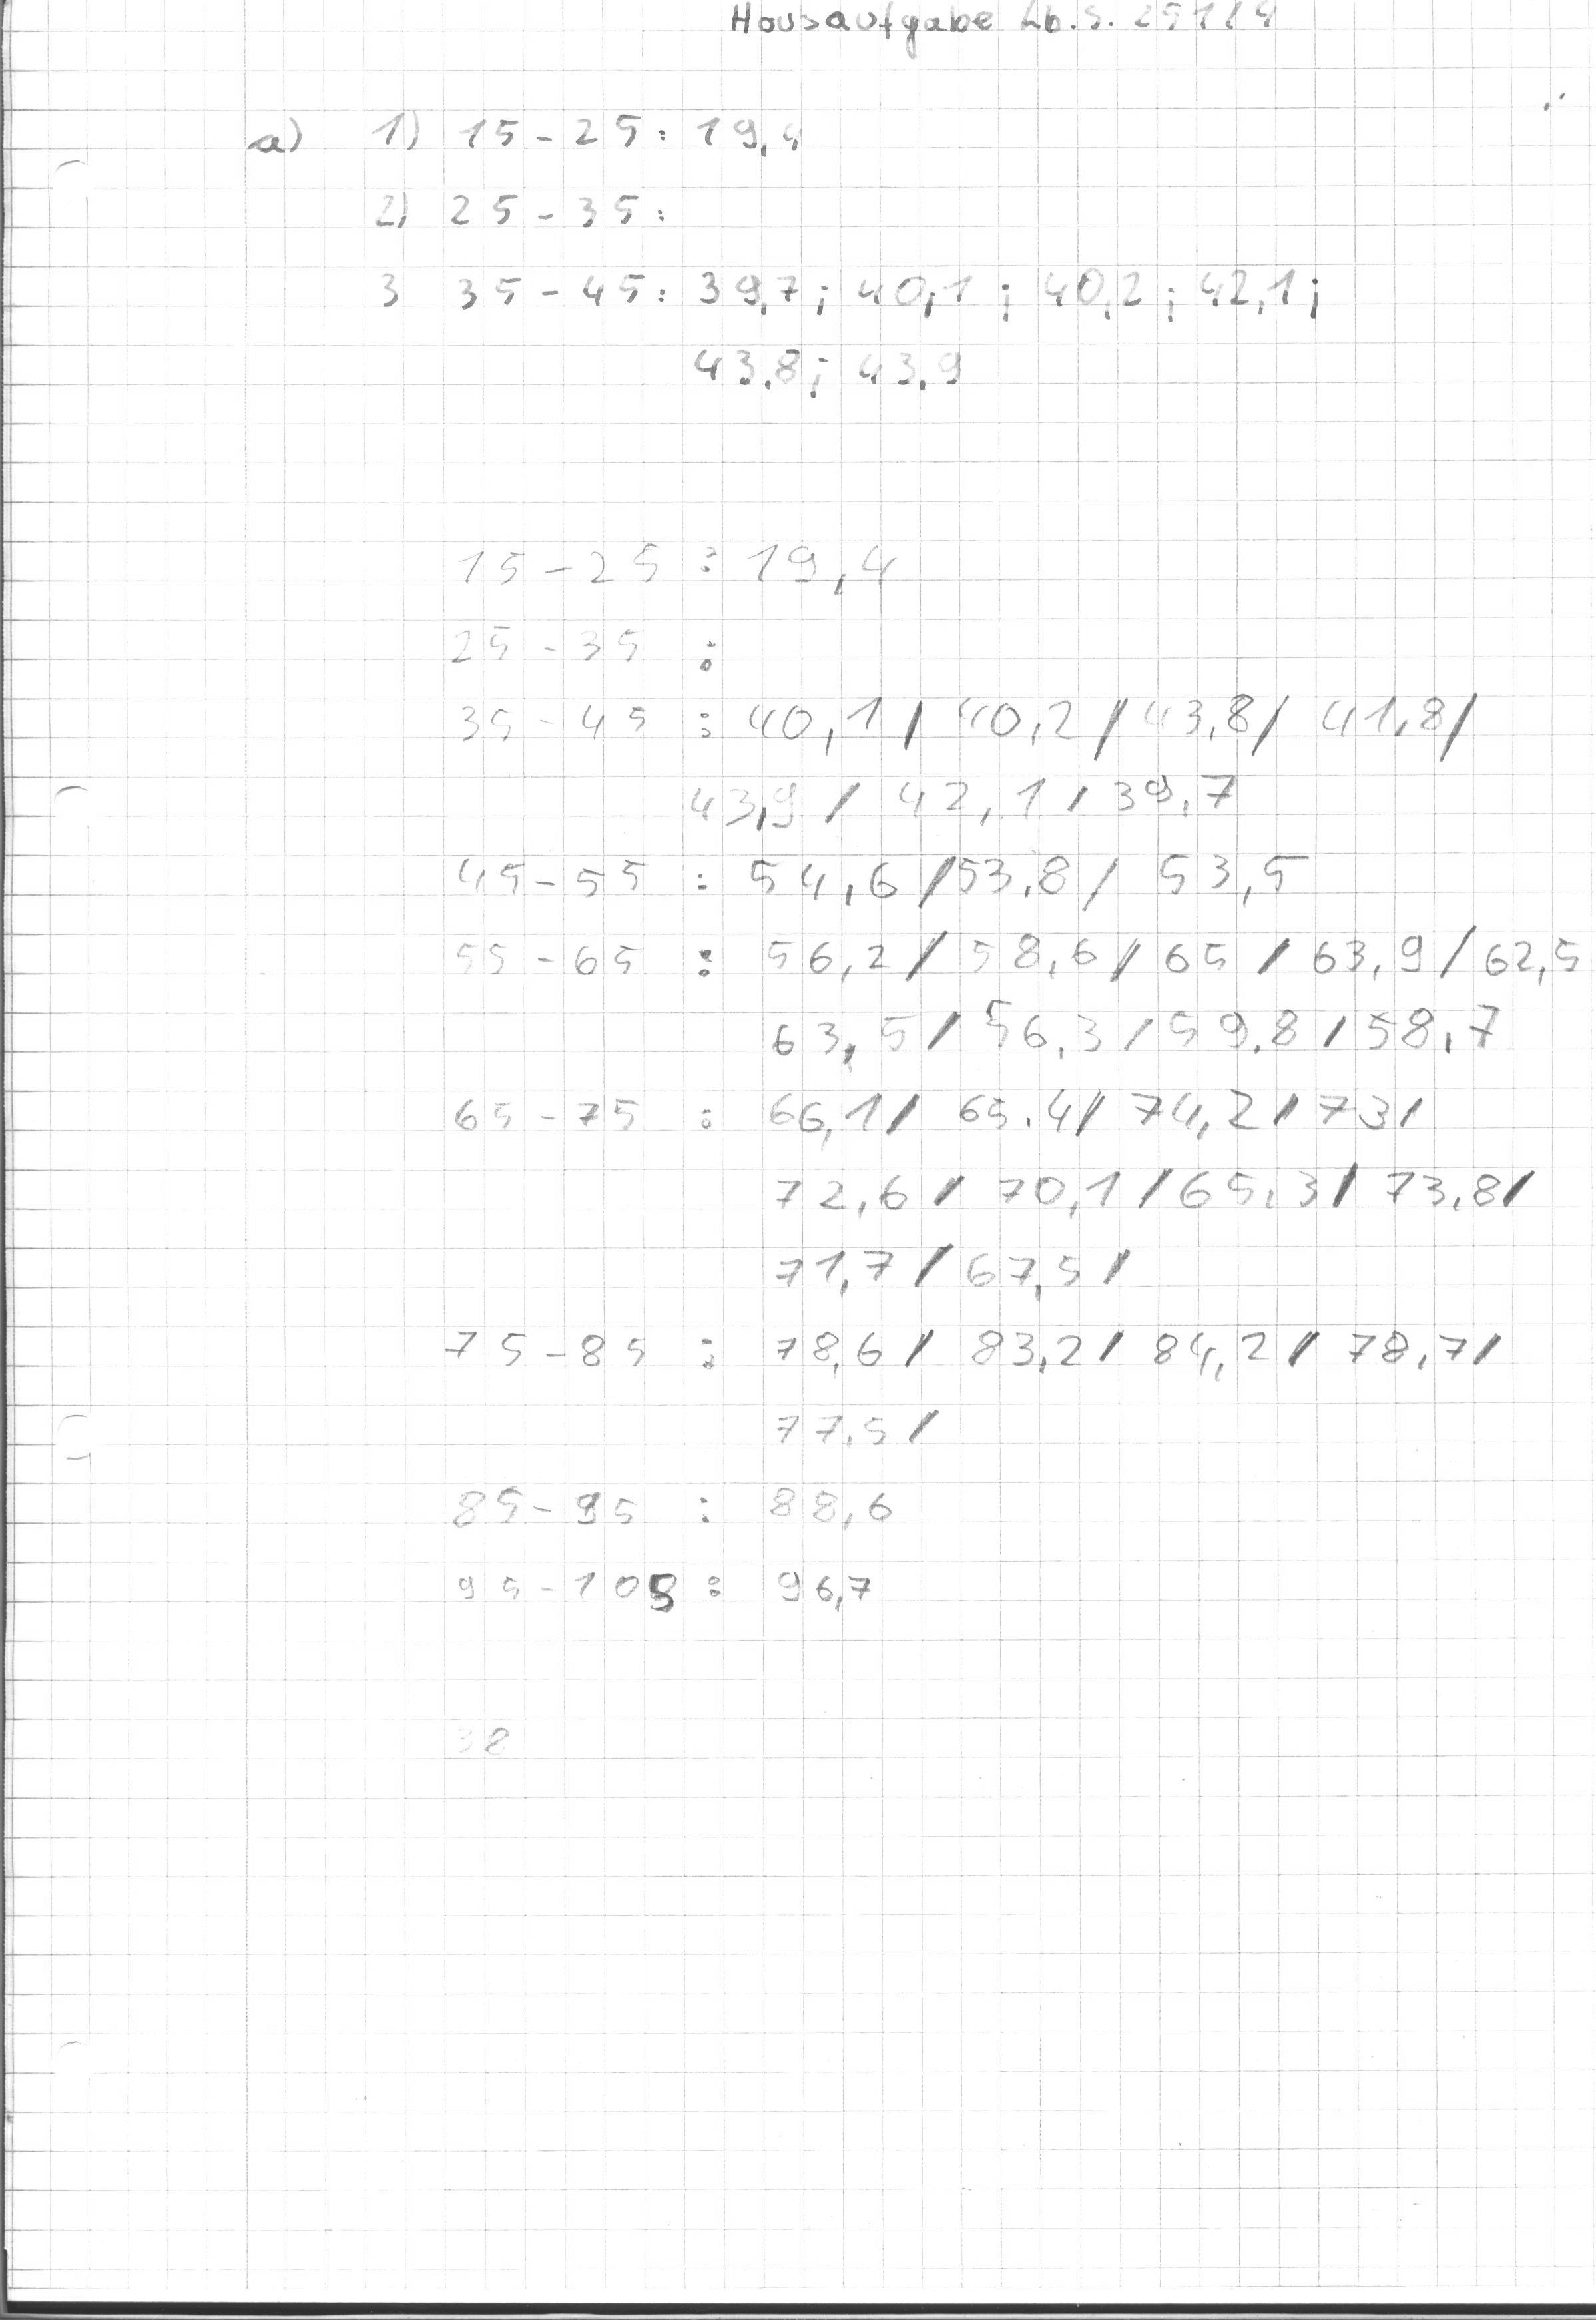 Hausaufgabe Lb. S. 251/4
a) 1) 15 - 25: 19,4
2) 25 - 35:
3 35 - 45: 39,7; 40,1; 40,2; 42,1;
43,8; 43,9
15 - 25 : 19,4
25 - 35 :
35 - 45 : 40,1 / 40,2 / 43,8 / 41,8 /
43,9 / 42,1 / 39,7
45 - 55 : 54,6 / 53,8 / 53,5
55 - 65 : 56,2 / 58,6 / 65 / 63,9 / 62,5
63,5 / 56,3 / 59,8 / 58,7
65 - 75 : 66,1 / 65,4 / 74,2 / 73 /
72,6 / 70,1 / 65,3 / 73,8 /
71,7 / 67,5 /
75 - 85 : 78,6 / 83,2 / 84,2 / 78,7 /
77,5 /
85 - 95 : 88,6
95 - 105 : 96,7
38